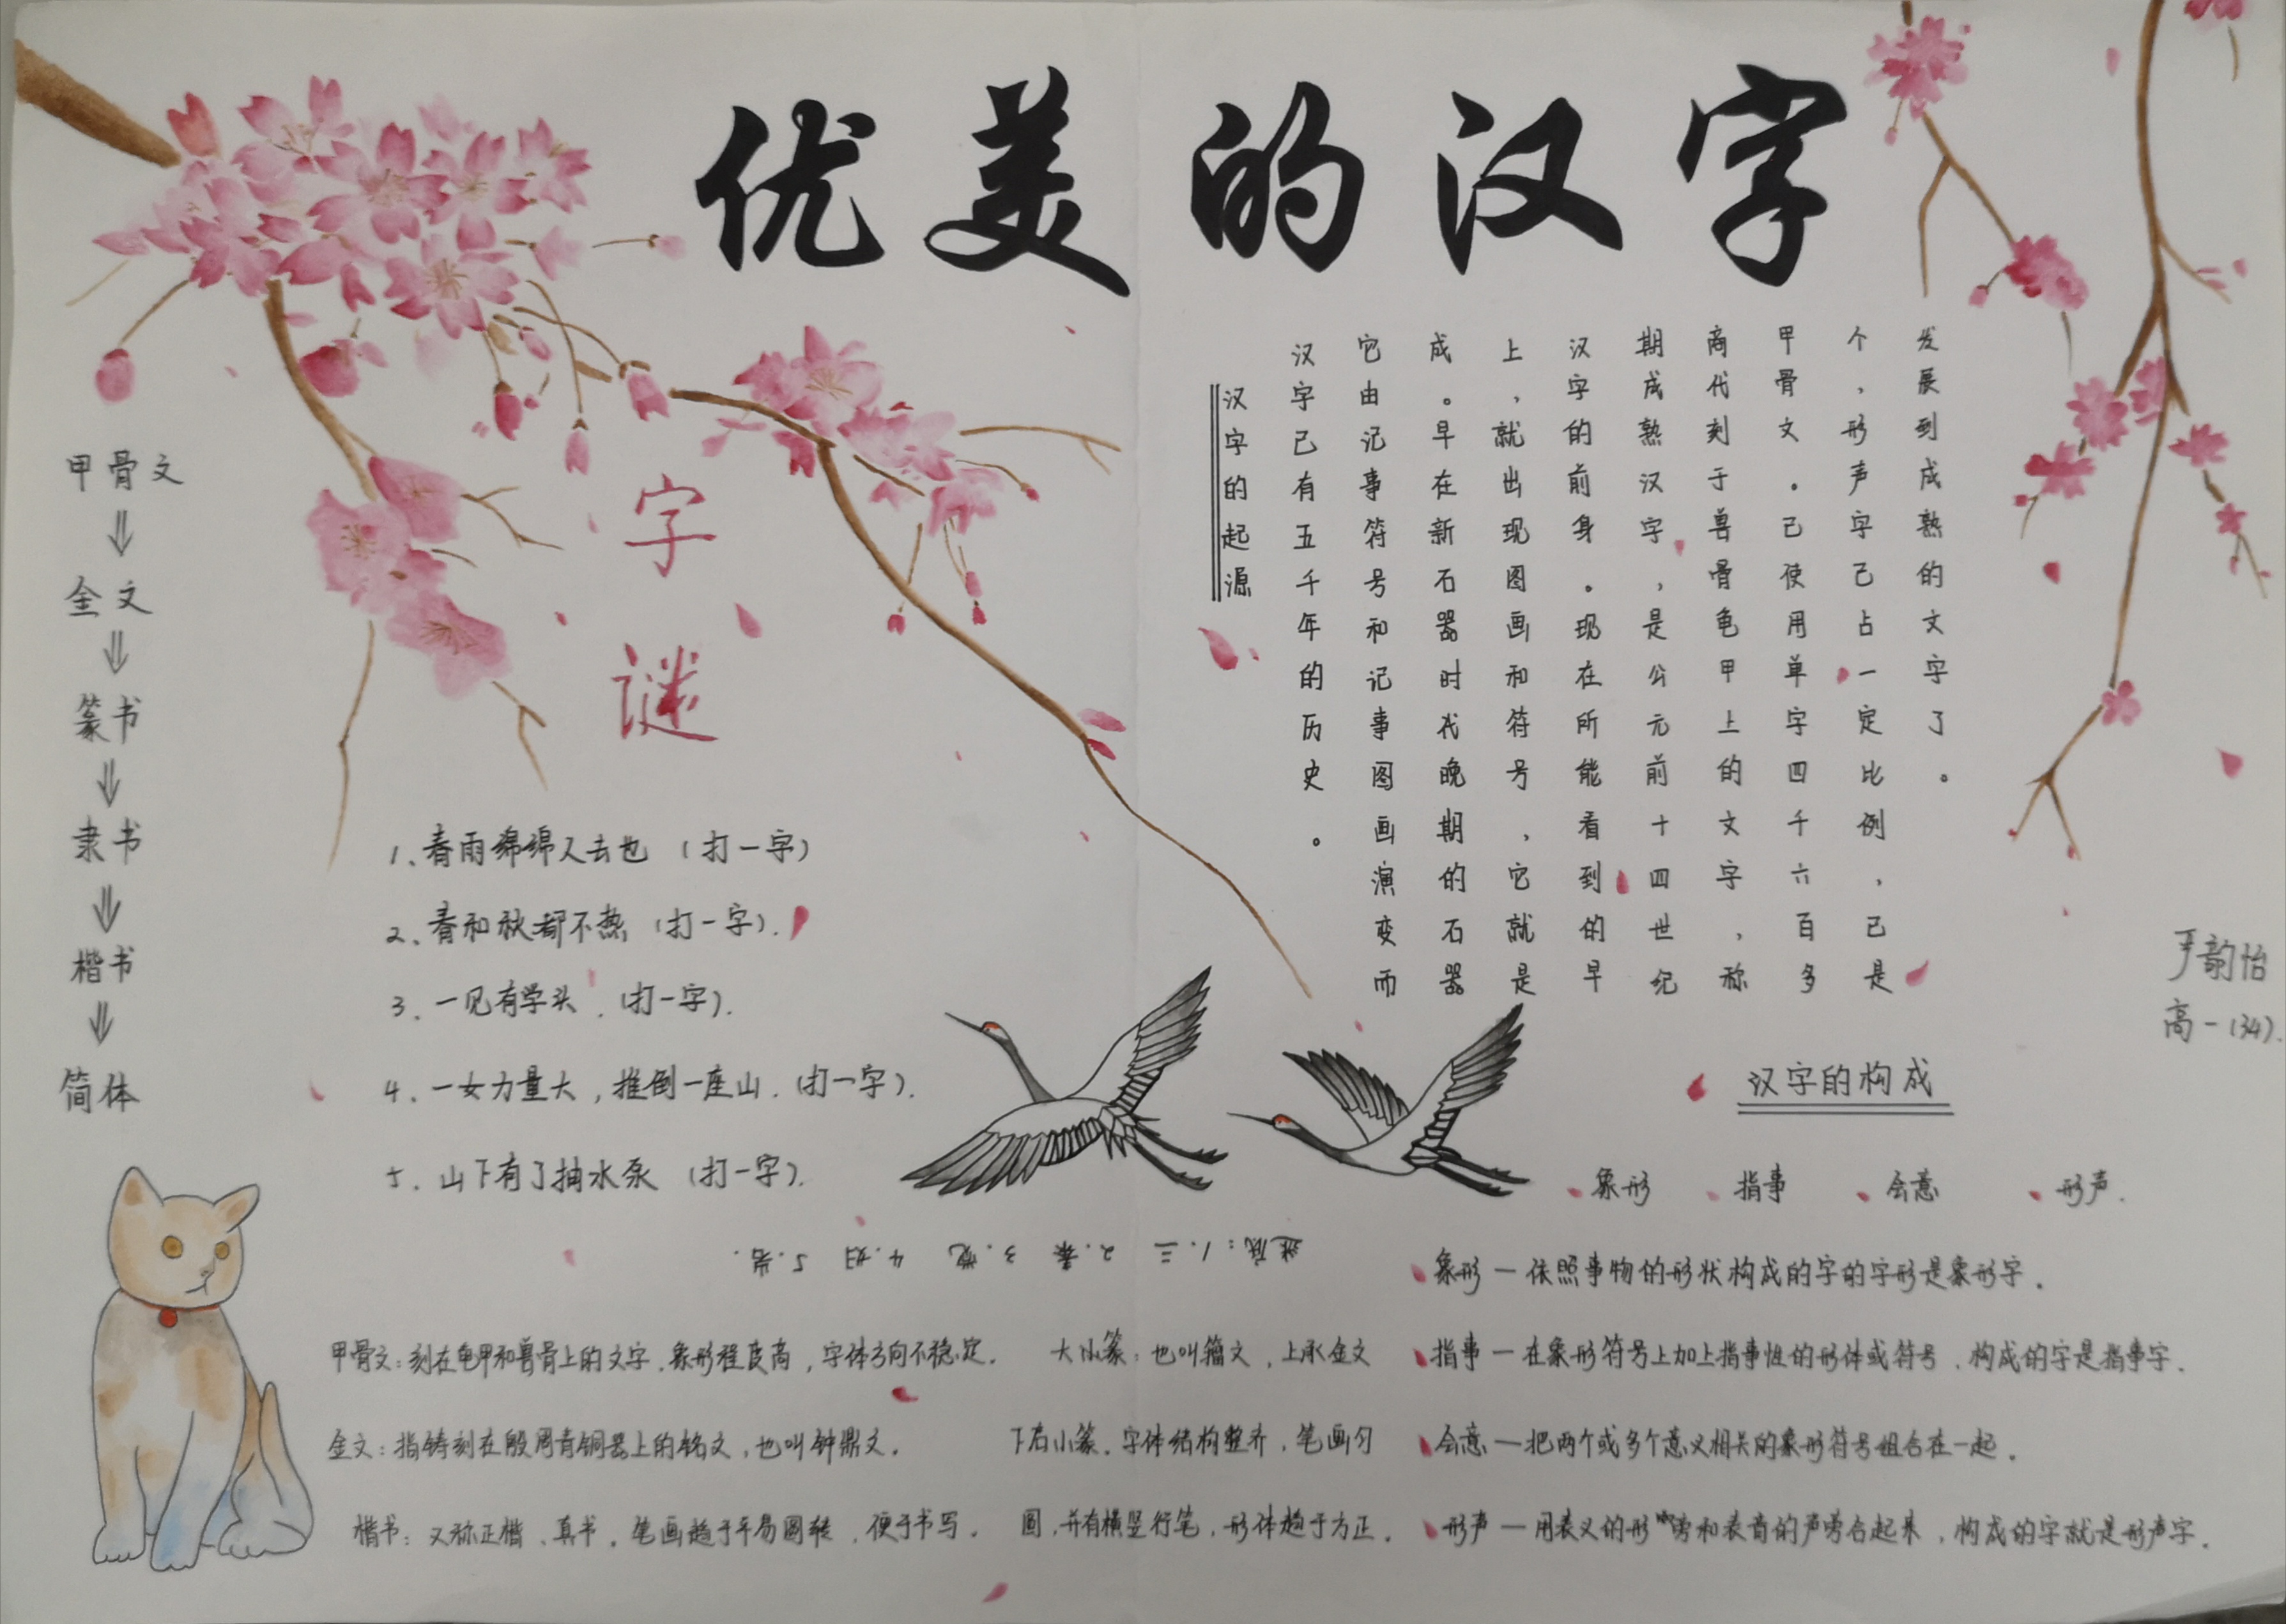 优美的汉字
甲骨文
⇓
金文
⇓
篆书
⇓
隶书
⇓
楷书
⇓
简体
字
谜
1、春雨绵绵人去也（打一字）
2、春和秋都不热（打一字）.
3、一见有学头.（打一字）.
4.一女力量大，推倒一座山.（打一字）.
5.山下有了抽水泵（打一字）.
谜底：1.三 2.秦 3.觉 4.妇 5.岩.
汉字的起源
汉字已有五千年的历史。
它由记事符号和记事图画演变而
成。早在新石器时代晚期的石器
上，就出现图画和符号，它就是
汉字的前身。现在所能看到的早
期成熟汉字，是公元前十四世纪
商代刻于兽骨龟甲上的文字，称
甲骨文。已使用单字四千六百多
个，形声字已占一定比例，已是
发展到成熟的文字了。
严韵怡
高一（34）.
汉字的构成
象形 指事 会意 形声.
象形—依照事物的形状构成的字的字形是象形字.
指事—在象形符号上加上指事性的形体或符号、构成的字是指事字.
会意—把两个或多个意义相关的象形符号组合在一起.
形声—用表义的形旁和表音的声旁合起来，构成的字就是形声字.
甲骨文：刻在龟甲和兽骨上的文字、象形程度高，字体方向不稳定.
金文：指铸刻在殷周青铜器上的铭文，也叫钟鼎文.
楷书：又称正楷、真书。笔画趋于平易圆转，便于书写.
大小篆：也叫籀文，上承金文
下启小篆.字体结构整齐，笔画匀
圆，并有横竖行笔，形体趋于方正.